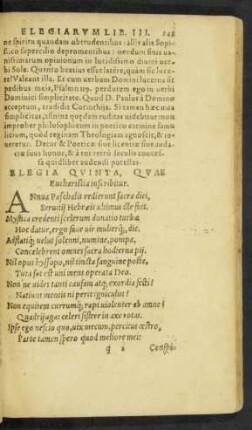 ELEGIARVM LIB. III.
ne spiritu quandam abtrudentibus: alij alis Sopi-
fico depromentibus: nedum sitis va-
nissimarum opinionum in lucidissimo diuini ver-
bi Sole. Quinto breuius esset latêre, quàm sic
Valeant illi. Et cum verbum Domini lucerna sit
pedibus meis, Psalm. 119. perdurem ego in verbi
Dominici simplicitate. Quod D. Paulus à Domino
acceptum, tradidit Corinthijs. Si tamen hæc mea
simplicitas, isthine quædam rusticitas videbitur mon
improbet philosophorum in poetico carmine simi-
licium, quod regiam Theologiam agnoscit, &
veretur. Detur & Poeticæ siue licentiæ siue auda-
ciæ suus honos, & à tot retrò seculis concessa
quidlibet audendi potestas.
ELEGIA QVINTA, QVAE
Eucharistia inscribitur.
ANnua Paschalis redierunt sacra diei,
Seruitij Hebræis vltimus ille fuit.
Mystica credenti scelerum donatio turbæ
Hoc datur, ergo fiue vir mulierq́, die.
Adstatiq́; velut solenni, numine, pompa,
Concelebrent omnes sacra hodierna pij.
Nil opus hyssopo, nil tincta sanguine poste,
Tuta sat est vni mens operata Deo.
Non ne vides tanti causam atq́; exordia festi?
Natiuum mentis ni perit igniculus?
Non equitem currumq́; rapi violenter ab amne?
Quadrijuga: celeri sistere in axe rotas.
Ipse ego nescio quo, vix mecum, percitus œstro,
Parte tamen spero quod meliore mei:
q 2
Conspi-